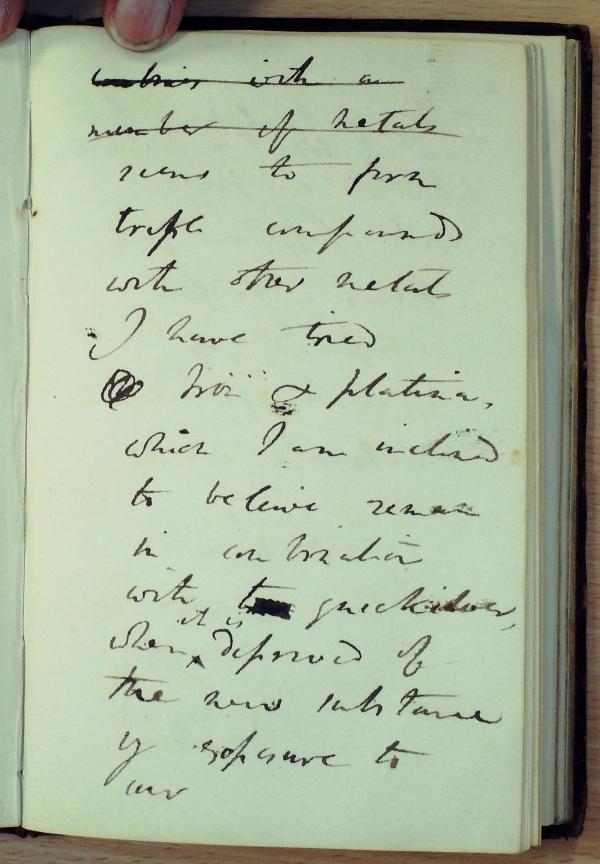 combines with a
number of metals
seems to form
triple compounds
with other metals
I have tried
Iron & platina,
which I am inclined
to believe remain
in combination
with quicksilver,
when it is deprived of
the new substance
by exposure to
air